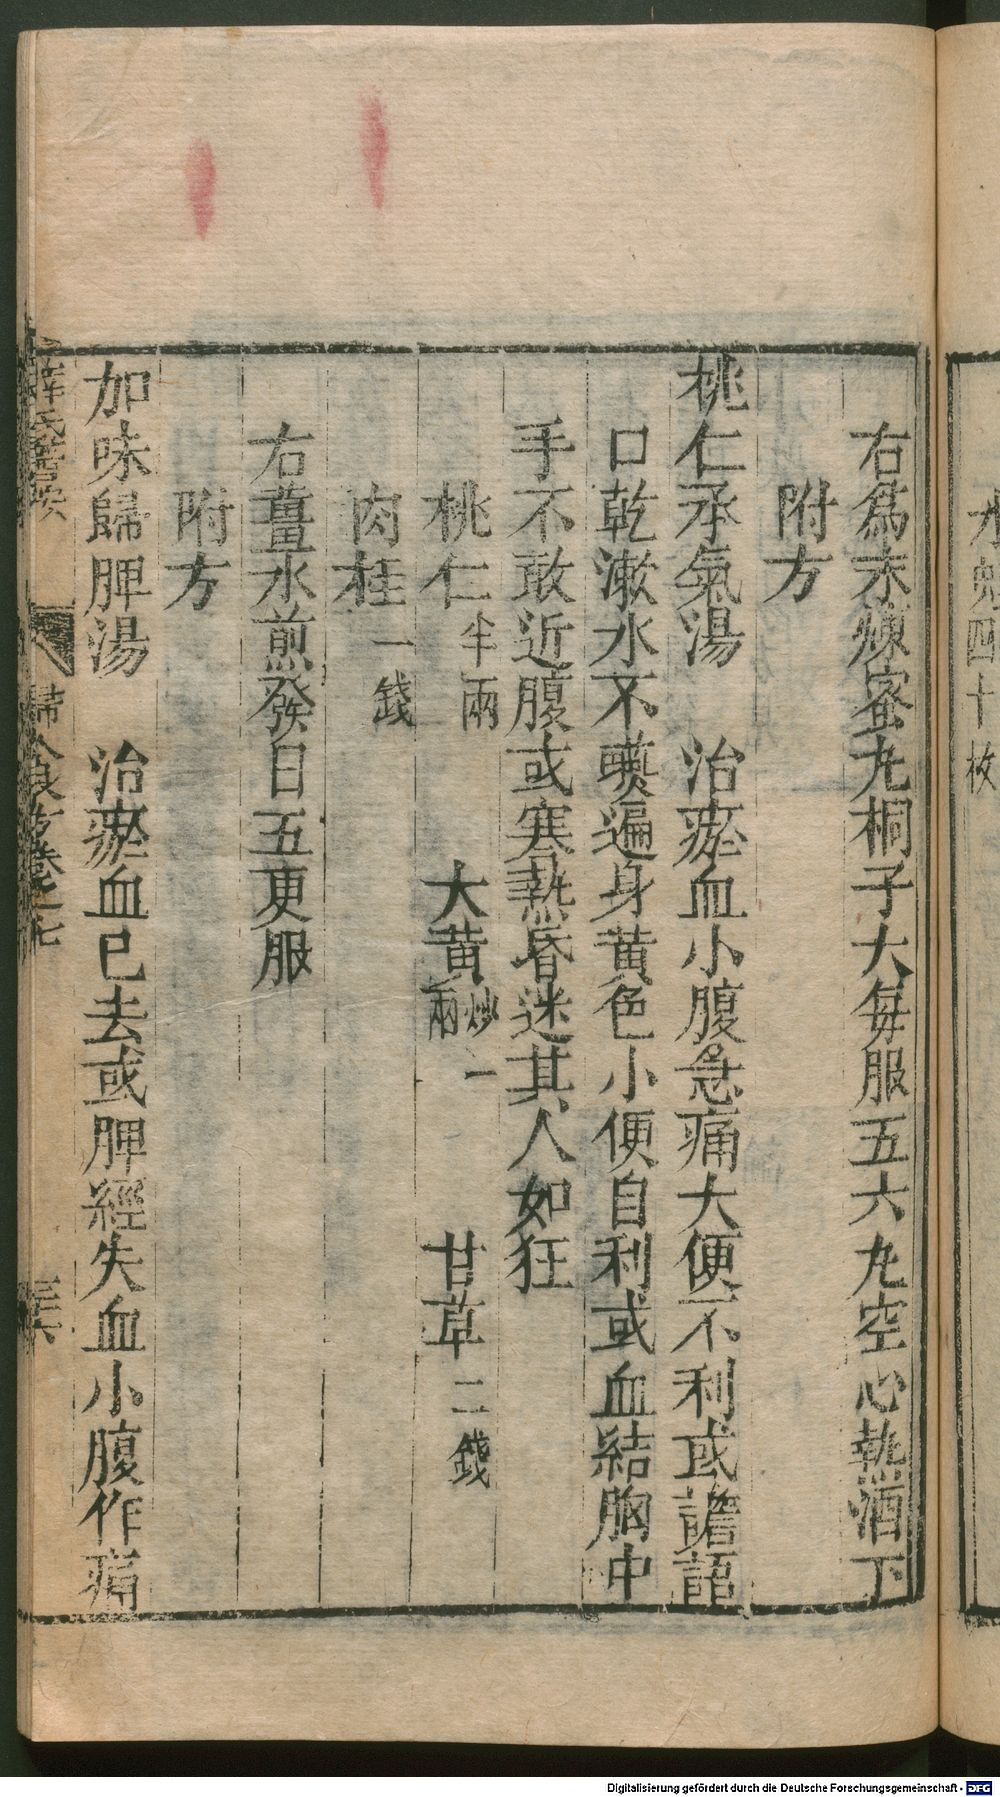 水蛭四十枚
右爲末煉蜜丸桐子大每服五六丸空心熱酒下
附方
桃仁承氣湯　治瘀血小腹急痛大便不利或譫語
口乾漱水不嚥遍身黃色小便自利或血結胸中
手不敢近腹或寒熱昏迷其人如狂
桃仁半兩　大黃炒一兩　甘草二錢
肉桂一錢
右薑水煎發日五更服
附方
加味歸脾湯　治瘀血已去或脾經失血小腹作痛
薛氏醫按
婦人良方卷之七
Digitalisierung gefördert durch die Deutsche Forschungsgemeinschaft - DFG